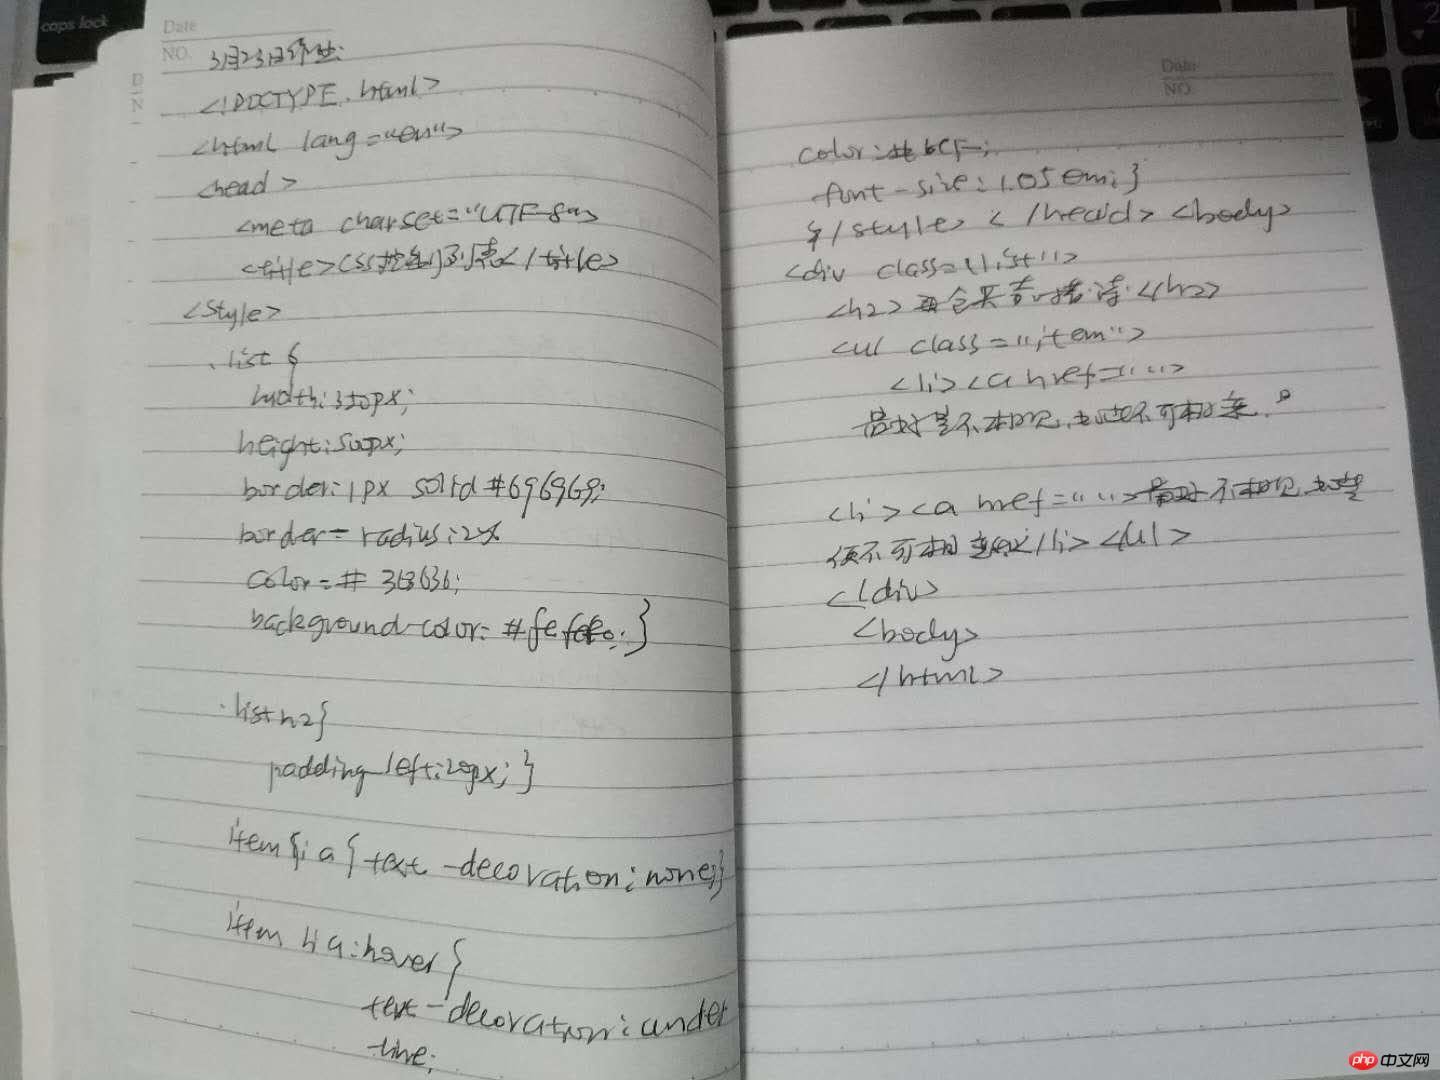 caps lock
Date
NO.
3月23日作业:
<!DOCTYPE html>
<html lang="en">
<head>
<meta charset="UTF-8">
<title>CSS控制列表</title>
<style>
.list {
width:350px;
height:500px;
border:1px solid #696969;
border-radius:2%
color=#363636;
background-color:
.list h2{
padding-left:20px;}
item li a{text-decoration:none;}
item li a:hover{
text-decoration:under
line;
Date
NO
color:#6CF;
font-size:1.05em;}
</style></head><body>
<div class="list">
<h2>
<ul class="item">
<li><a href="">
最好是不相见,
<li><a href="">最好不相见,
便不可相</li></ul>
</div>
<body>
</html>
php中文网